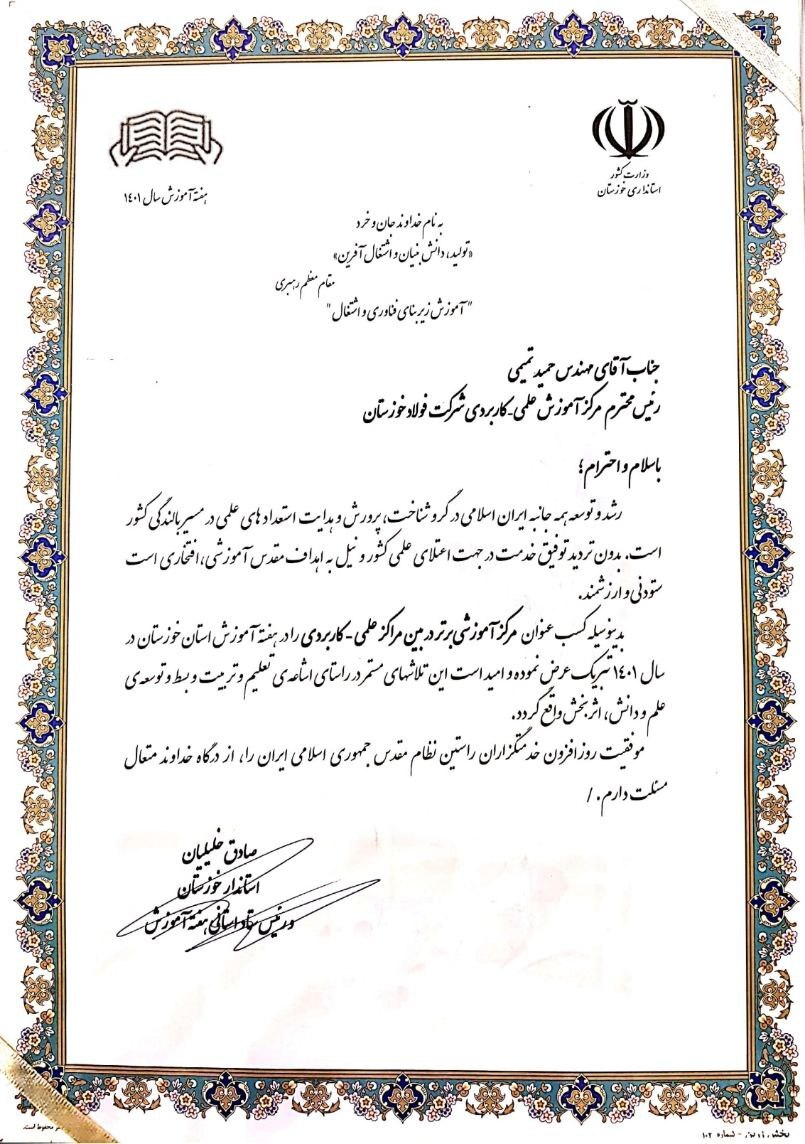 وزارت کشور
استانداری خوزستان
هفته آموزش سال ۱۴۰۱
به نام خداوند جان و خرد
«تولید، دانش بنیان و اشتغال آفرین»
مقام معظم رهبری
"آموزش زیربنای فناوری و اشتغال"
جناب آقای مهندس حمید تمیمی
رئیس محترم مرکز آموزش علمی-کاربردی شرکت فولاد خوزستان
باسلام و احترام؛
رشد و توسعه همه جانبه ایران اسلامی در گرو شناخت، پرورش و هدایت استعدادهای علمی در مسیر بالندگی کشور
است. بدون تردید توفیق خدمت در جهت اعتلای علمی کشور و نیل به اهداف مقدس آموزشی، افتخاری است
ستودنی و ارزشمند.
بدینوسیله کسب عنوان مرکز آموزشی برتر در بین مراکز علمی-کاربردی را در هفته آموزش استان خوزستان در
سال ۱۴۰۱ تبریک عرض نموده و امید است این تلاشهای مستمر در راستای اشاعه‌ی تعلیم و تربیت و بسط و توسعه‌ی
علم و دانش، اثربخش واقع گردد.
موفقیت روزافزون خدمتگزاران راستین نظام مقدس جمهوری اسلامی ایران را، از درگاه خداوند متعال
مسئلت دارم. /
صادق خلیلیان
استاندار خوزستان
و رئیس ستاد استانی هفته آموزش
محفوظ است.
پخش - شماره ۱۰۲